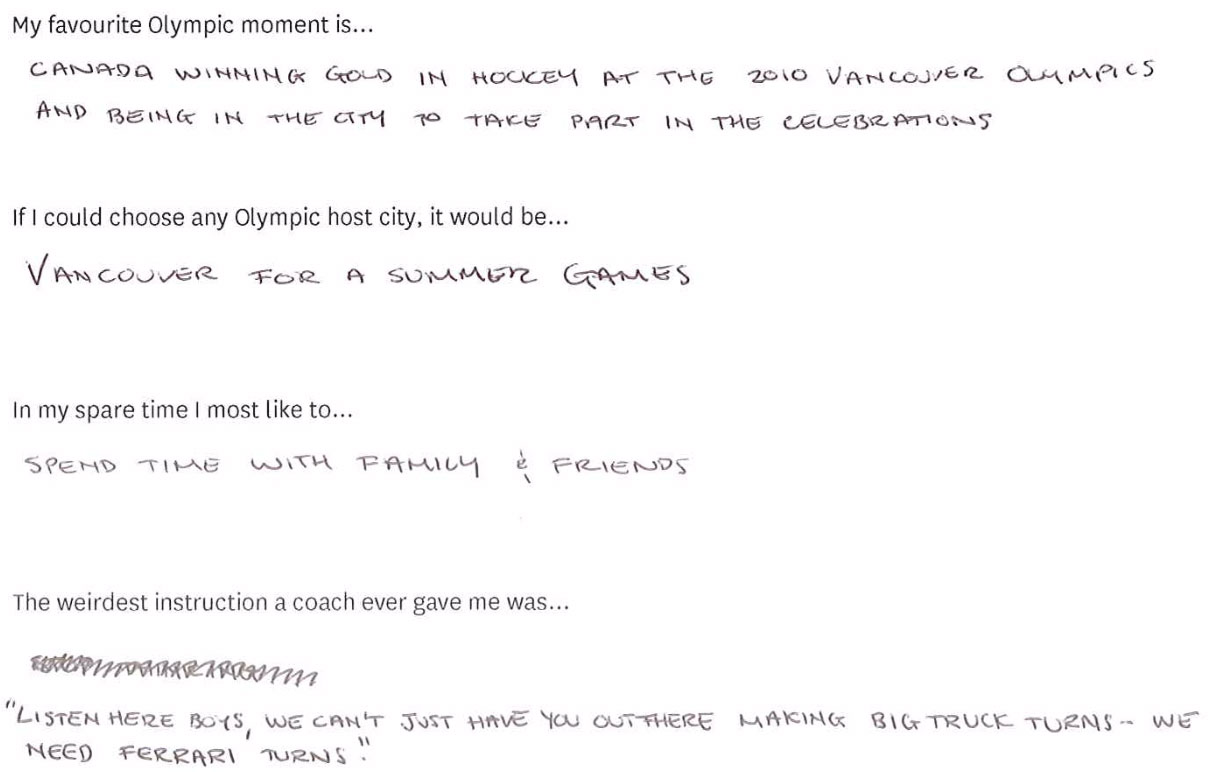 My favourite Olympic moment is...
CANADA WINNING GOLD IN HOCKEY AT THE 2010 VANCOUVER OLYMPICS
AND BEING IN THE CITY TO TAKE PART IN THE CELEBRATIONS
If I could choose any Olympic host city, it would be...
VANCOUVER FOR A SUMMER GAMES
In my spare time I most like to...
SPEND TIME WITH FAMILY & FRIENDS
The weirdest instruction a coach ever gave me was...
"LISTEN HERE BOYS, WE CAN'T JUST HAVE YOU OUT THERE MAKING BIG TRUCK TURNS -- WE
NEED FERRARI TURNS."